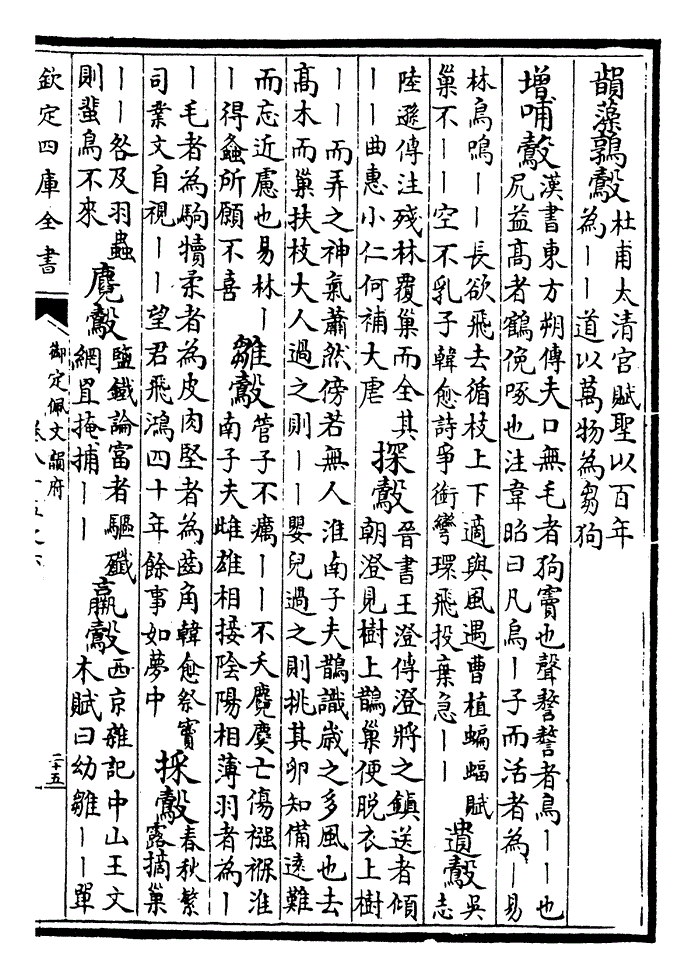 韻藻鶉鷇
杜甫太清宫賦聖以百年
為丨丨道以萬物為芻狗
增哺鷇
漢書東方朔傳夫口無毛者狗竇也聲謷謷者鳥丨丨也
尻益高者鶴俛啄也注韋昭曰凡鳥丨子而活者為丨易
林鳥鳴丨丨長欲飛去循枝上下適與風遇曹植蝙蝠賦
巢不丨丨空不乳子韓愈詩爭銜彎環飛投棄急丨丨
遺鷇
吳
志
陸遜傳注殘林覆巢而全其
丨丨曲惠小仁何補大虐
探鷇
晉書王澄傳澄將之鎮送者傾
朝澄見樹上鵲巢便脫衣上樹
丨丨而弄之神氣蕭然傍若無人淮南子夫鵲識歲之多風也去
高木而巢扶枝大人過之則丨丨嬰兒過之則挑其卵知備遠難
而忘近慮也易林丨
丨得螽所願不喜
雛鷇
管子不癘丨丨不夭麛麌亡傷襁褓淮
南子夫雌雄相接陰陽相薄羽者為丨
丨毛者為駒犢柔者為皮肉堅者為齒角韓愈祭竇
司業文自視丨丨望君飛鴻四十年餘事如夢中
採鷇
春秋繁
露摘巢
丨丨咎及羽蟲
則蜚鳥不來
麛鷇
鹽鐵論富者驅殲
網罝掩捕丨丨
羸鷇
西京雜記中山王文
木賦曰幼雛丨丨單
欽定四庫全書
御定佩文韻府
二十五